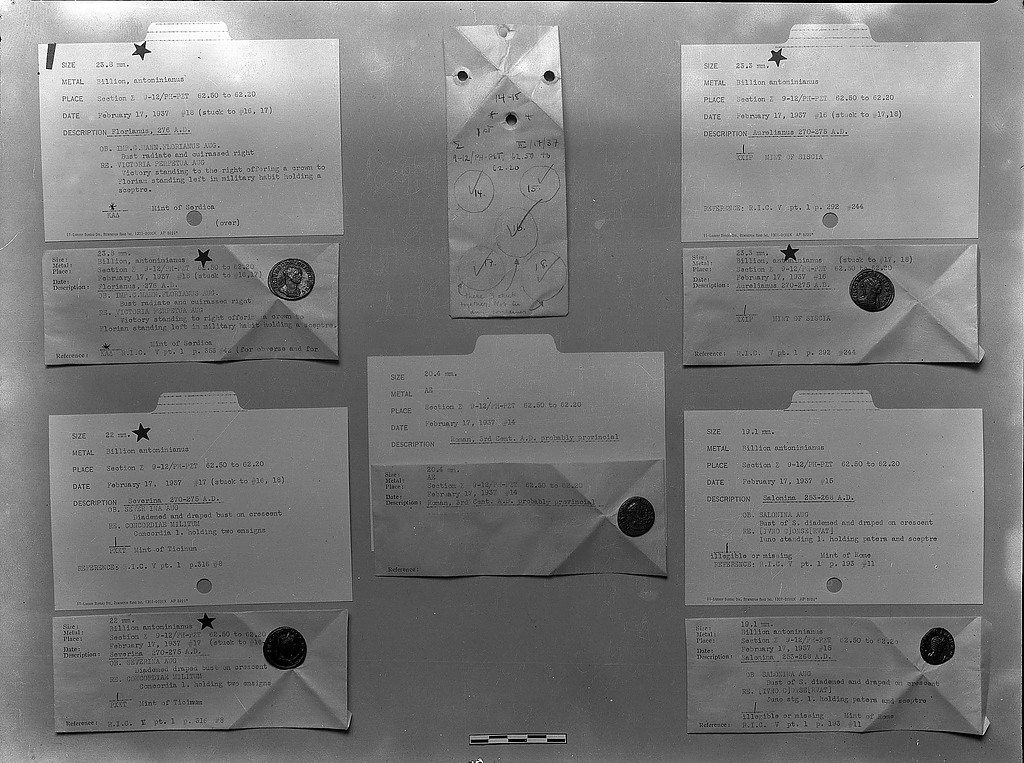 SIZE 23.8 mm.
METAL Billion, antoninianus
PLACE Section Z 9-12/PH-PZT 62.50 to 62.20
DATE February 17, 1937 #18 (stuck to #16, 17)
DESCRIPTION Florianus, 276 A.D.
OB. IMP.C.MANN.FLORIANUS AUG.
Bust radiate and cuirassed right
RE. VICTORIA PERPETUA AUG
Victory standing to the right offering a crown to
Florian standing left in military habit holding a
sceptre.
KAA Mint of Serdica
(over)
Size: 23.8 mm.
Metal: Billion, antoninianus
Place: Section Z 9-12/PH-PZT 62.50 to 62.20
Date: February 17, 1937 #18 (stuck to #16,17)
Description: Florianus, 276 A.D.
OB. IMP.C.MANN.FLORIANUS AUG.
Bust radiate and cuirassed right
RE. VICTORIA PERPETUA AUG
Victory standing to right offering a crown to
Florian standing left in military habit holding a sceptre.
Mint of Serdica
Reference: KAA R.I.C. V pt. 1 p. (for obverse and for
14-18
9-12/PH-PZT, 62.50 to
62.20
14.
15.
16.
17.
18.
SIZE 23.3 mm.
METAL Billion antoninianus
PLACE Section Z 9-12/PH-PZT 62.50 to 62.20
DATE February 17, 1937 #16 (stuck to #17,18)
DESCRIPTION Aurelianus 270-275 A.D.
XXIP MINT OF SISCIA
REFERENCE: R.I.C. V pt. 1 p. 292 #244
Size: 23.3 mm.
Metal: Billion antoninianus (stuck to #17, 18)
Place: Section Z 9-12/PH-PZT 62.50 to 62.20
Date: February 17, 1937 #16
Description: Aurelianus 270-275 A.D.
XXIP MINT OF SISCIA
Reference: R.I.C. V pt. 1 p. 292 #244
SIZE 22 mm.
METAL Billion antoninianus
PLACE Section Z 9-12/PH-PZT 62.50 to 62.20
DATE February 17, 1937 #17 (stuck to #16, 18)
DESCRIPTION Severina 270-275 A.D.
OB. SEVERINA AUG
Diademed and draped bust on crescent
RE. CONCORDIAE MILITUM
Concordia l. holding two ensigns
PXXT Mint of Ticinum
REFERENCE: R.I.C. V pt. 1 p.316 #8
Size: 22 mm.
Metal: Billion antoninianus
Place: Section Z 9-12/PH-PZT 62.50 to 62.20
Date: February 17, 1937 #17 (stuck to
Description: Severina 270-275 A.D.
OB. SEVERINA AUG
Diademed draped bust on crescent
RE. CONCORDIAE MILITUM
Concordia l. holding two ensigns
PXXT Mint of Ticinum
Reference: R.I.C. V pt. 1 p. 316 #8
SIZE 20.4 mm.
METAL AE
PLACE Section Z 9-12/PH-PZT 62.50 to 62.20
DATE February 17, 1937 #14
DESCRIPTION Roman, 3rd Cent. A.D. probably provincial
Size: 20.4 mm.
Metal: AE
Place: Section Z 9-12/PH-PZT 62.50 to 62.20
Date: February 17, 1937 #14
Description: Roman, 3rd Cent. A.D. probably provincial
Reference:
SIZE 19.1 mm.
METAL Billion antoninianus
PLACE Section Z 9-12/PH-PZT 62.50 to 62.20
DATE February 17, 1937 #15
DESCRIPTION Salonina 253-268 A.D.
OB. SALONINA AUG
Bust of S. diademed and draped on crescent
RE. [IVNO C]ONSE[RVAT]
Iuno standing l. holding patera and sceptre
illegible or missing Mint of Rome
REFERENCE: R.I.C. V pt. 1 p. 193 #11
Size: 19.1 mm.
Metal: Billion antoninianus
Place: Section Z 9-12/PH-PZT 62.50 to 62.20
Date: February 17, 1937 #15
Description: Salonina 253-268 A.D.
OB. SALONINA AUG
Bust of S. diademed and draped on crescent
RE. [IVNO C]ONSE[RVAT]
Juno stg. l. holding patera and sceptre
illegible or missing Mint of Rome
Reference: R.I.C. V pt. 1 p. 193 #11